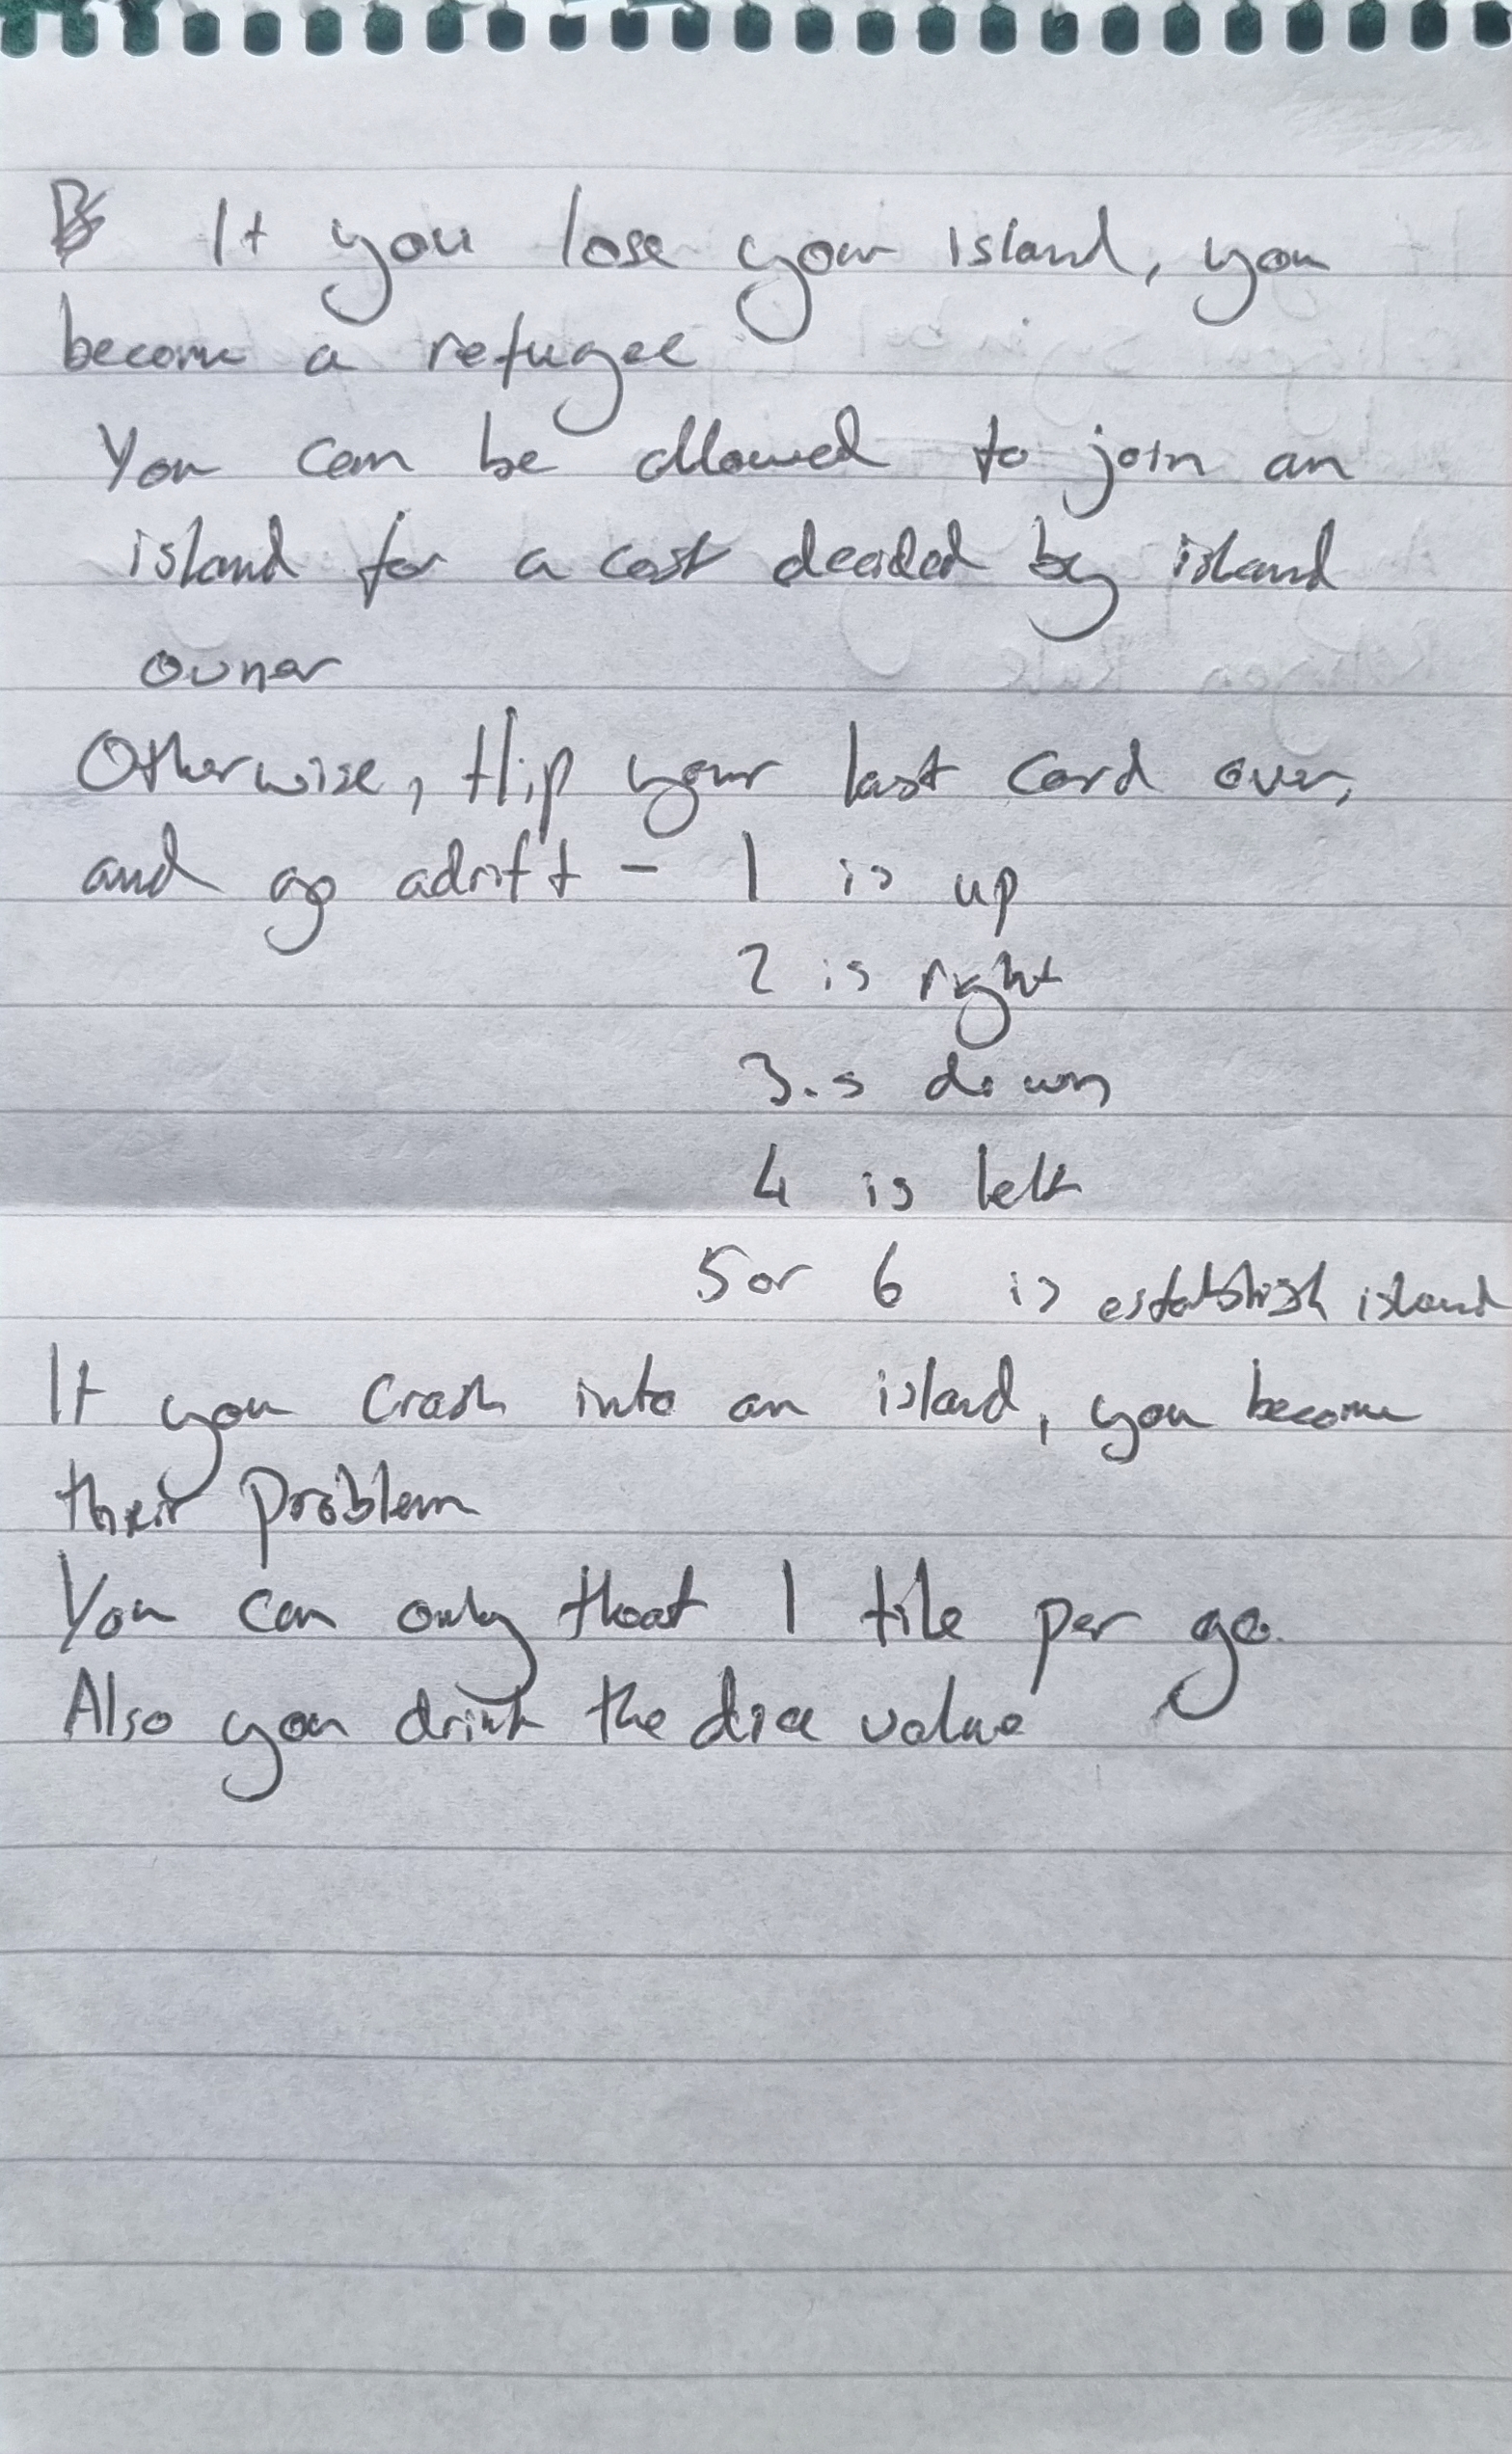 If you lose your island, you
become a refugee
You can be allowed to join an
island for a cost decided by island
owner
Otherwise, flip your last card over,
and go adrift - 1 is up
2 is right
3 is down
4 is left
5 or 6 is establish island
If you crash into an island, you become
their problem
You can only float 1 tile per go.
Also you drink the dice value